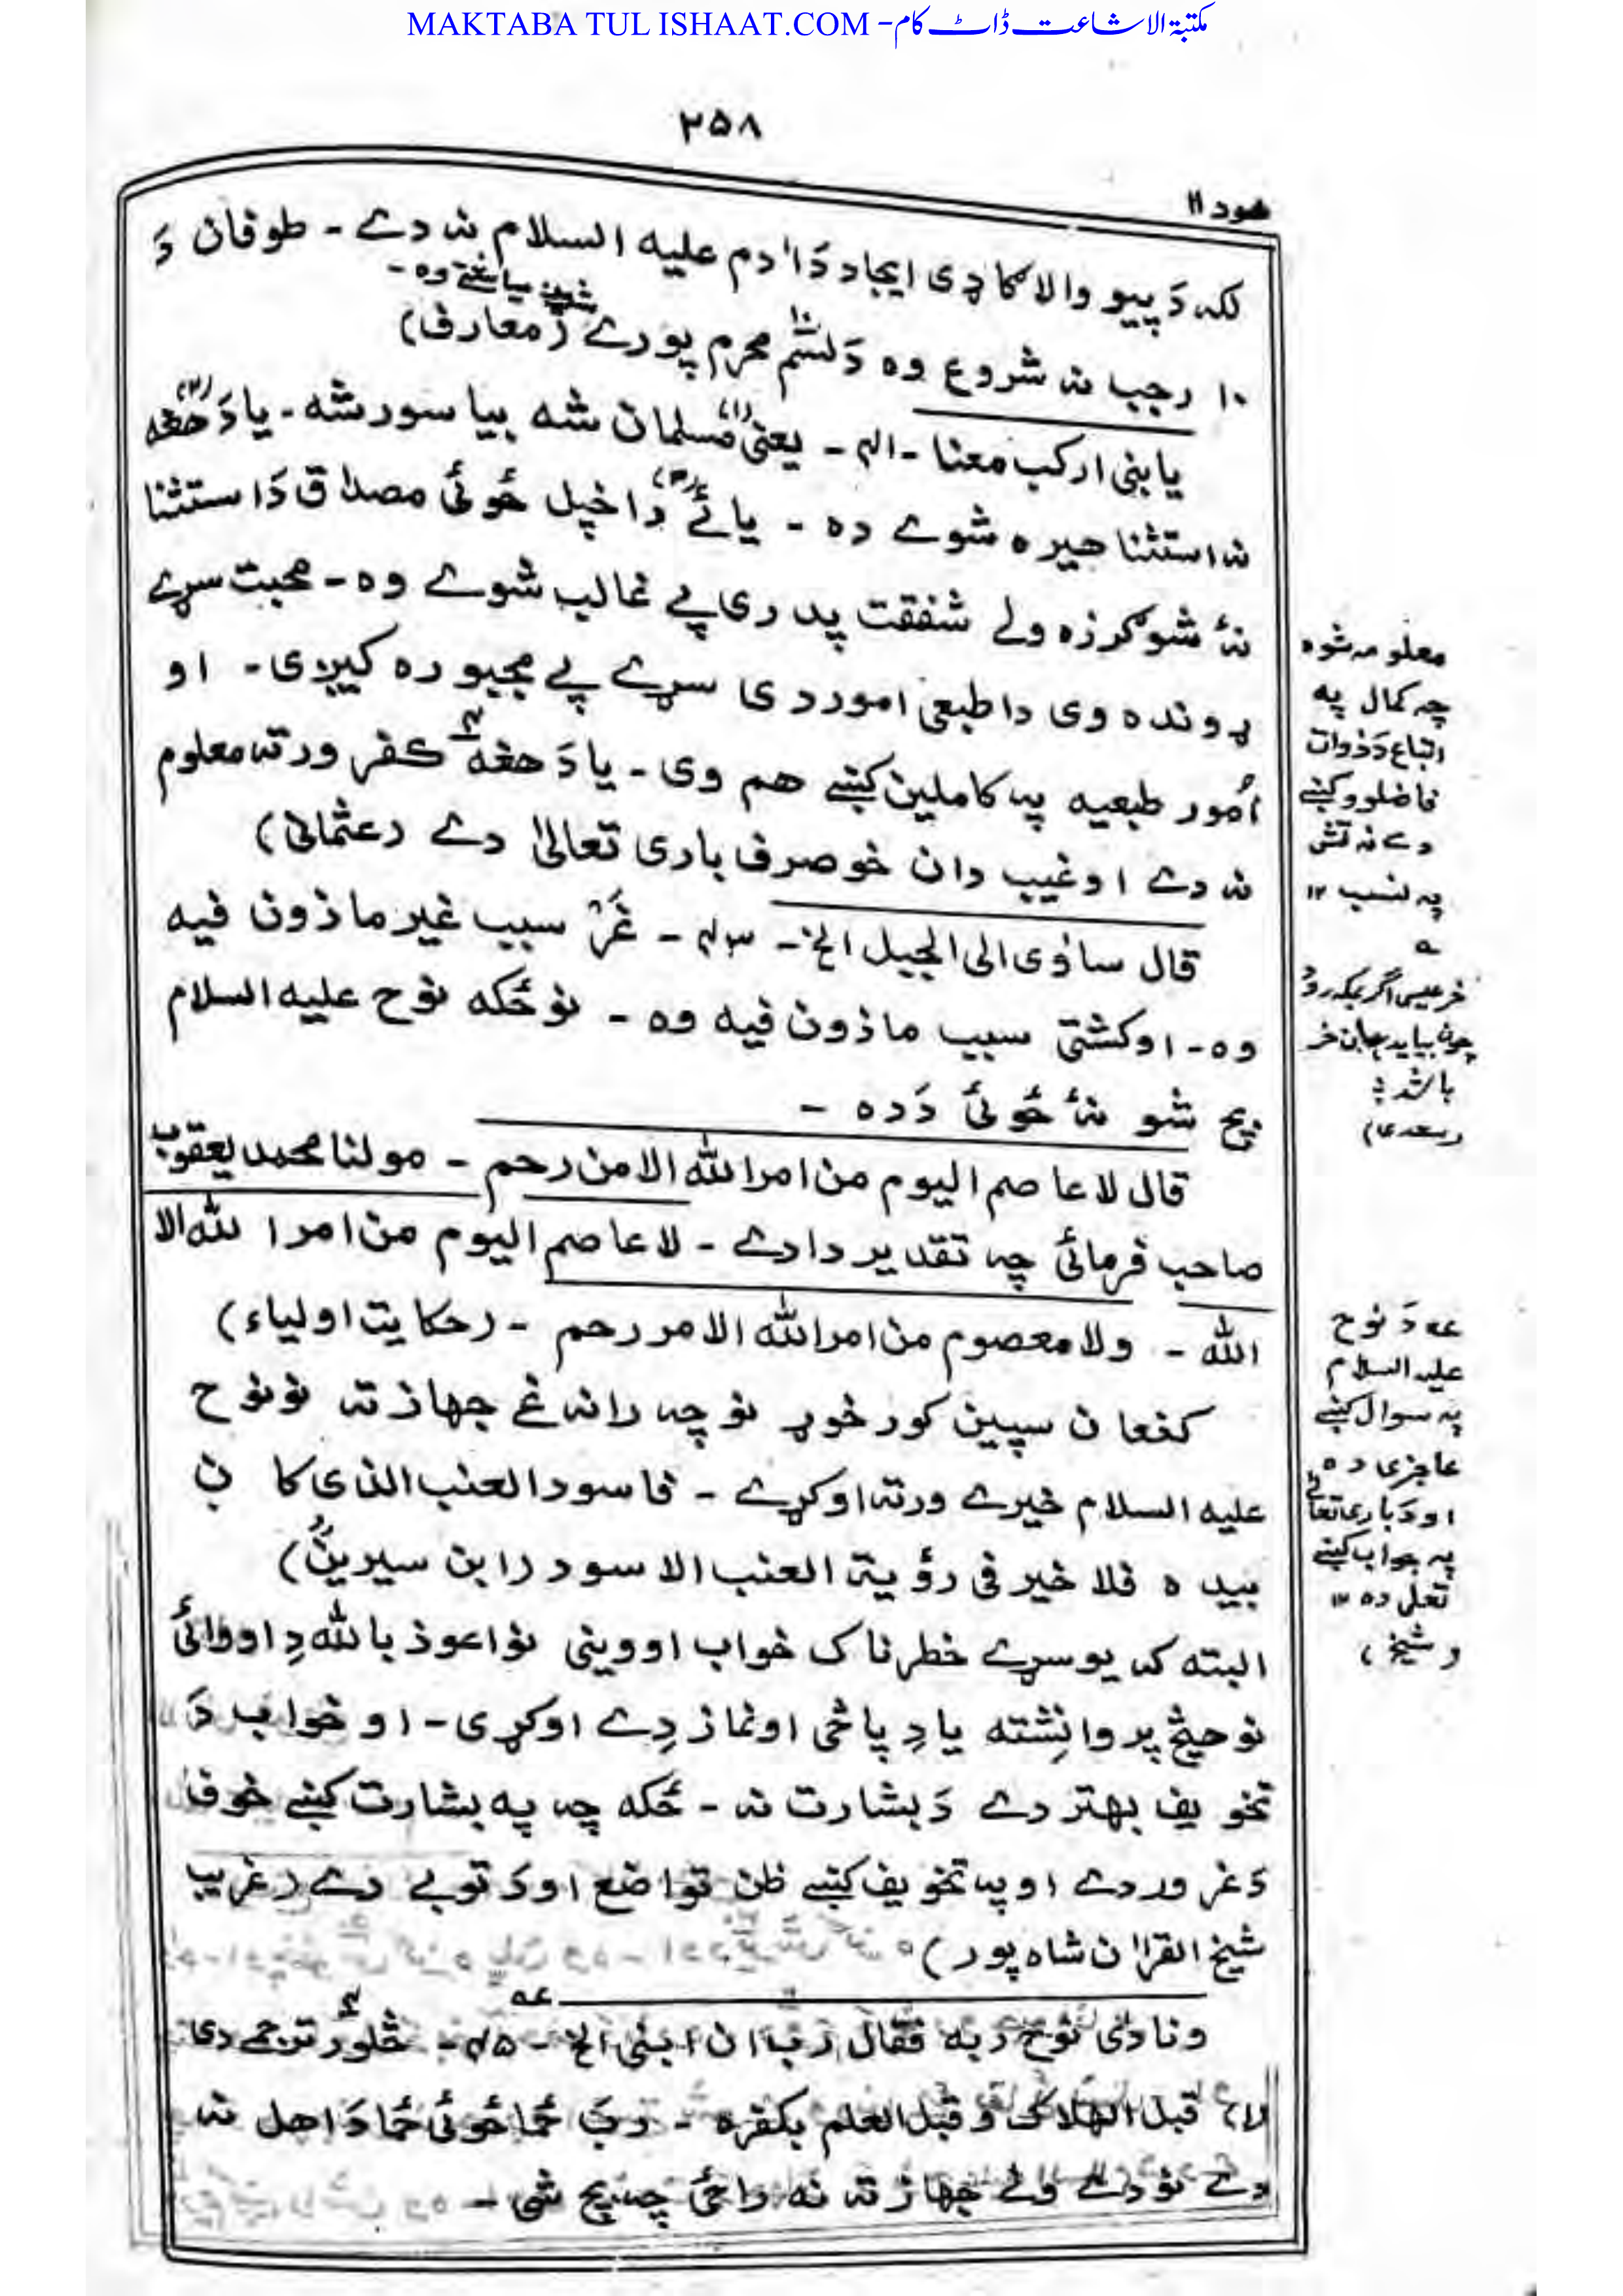 MAKTABA TUL ISHAAT.COM - مکتبۃ الاشاعت ڈاٹ کام
۲۵۸
هود ۱۱
لکه دَ پیو والا ګاډی ایجاد دَ اٰدم علیه السلام نه دے ـ طوفان دَ
۱۰ رجب نه شروع وه دَ لسم محرم پورے (معارف)
یا بنی ارکب معنا ـ الم ـ یعنی مسلمان شه بیا سور شه ـ یا دَ حغه
نه استثنا هیره شوے ده ـ یا ئے دا خپل ځوئ مصداق دَ استثنا
نهٔ شو ګرزولے شفقت پدری پے غالب شوے وه ـ محبت سړے
ړوند وی دا طبعی امور دی سړے پے مجبوره کیږی ـ او
اُمور طبعیه په کاملین کښے هم وی ـ یا دَ حغه کفر ورته معلوم
نه دے او غیب دان خو صرف باری تعالیٰ دے (عثمانی)
قال ساٰوی الی الجبل الخ ـ ۴۳ ـ غر سبب غیر ماذون فیه
وه ـ او کشتی سبب ماذون فیه وه ـ نو ځکه نوح علیه السلام
بچ شو نهٔ ځوئ دَده ـ
قال لا عاصم الیوم من امر الله الا من رحم ـ مولنا محمد یعقوب
صاحب فرمائی چه تقدیر دا دے ـ لا عاصم الیوم من امر الله الا
الله ـ ولا معصوم من امر الله الا مر رحم ـ (حکایت اولیاء)
کنعان سپین کور خوړ نو چه رانه غے جهاز ته نو نوح
علیه السلام خیرے ورته اوکړے ـ فاسود العنب الذی کان
بیده فلا خیر فی رؤیة العنب الاسود (ابن سیرین)
البته که یو سړے خطرناک خواب اووینی نو اعوذ بالله دِ اووائی
نو هیڅ پروا نِشته یا دِ پاځی او نماز دِے اوکړی ـ او خواب دَ
تخویف بهتر دے دَ بشارت نه ـ ځکه چه په بشارت کښے خوف
دَ غرور دے او په تخویف کښے ظن تواضع او دَ توبے دے (غریب
شیخ القراٰن شاه پور)
ونادٰی نوح ربه فقال رب ان ابنی الخ ـ ۴۵ ـ څلور ترجمے دی
(۱) قبل الهلاک و قبل العلم بکفره ـ ربَ ځما ځوئ ځما دَ اهل نه
دے نو دے ولے جهاز ته نه راځی چه بچ شی ـ
معلومه شوه
چه کمال په
اتباع دَ ذوات
فاضلو کښے
دے نه تش
په نسب ۱۲
خر عیسی اگر بمکه رود
چون بیاید هان خر
باشد
(سعدی)
عه دَ نوح
علیه السلام
په سوال کښے
عاجزی ده
او دَ باری تعالیٰ
په جواب کښے
تعلی ده ۱۲
(شیخ)